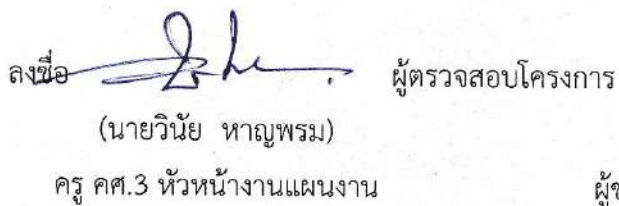 ลงชื่อ ผู้ตรวจสอบโครงการ
(นายวินัย หาญพรม)
ครู คศ.3 หัวหน้างานแผนงาน ผู้